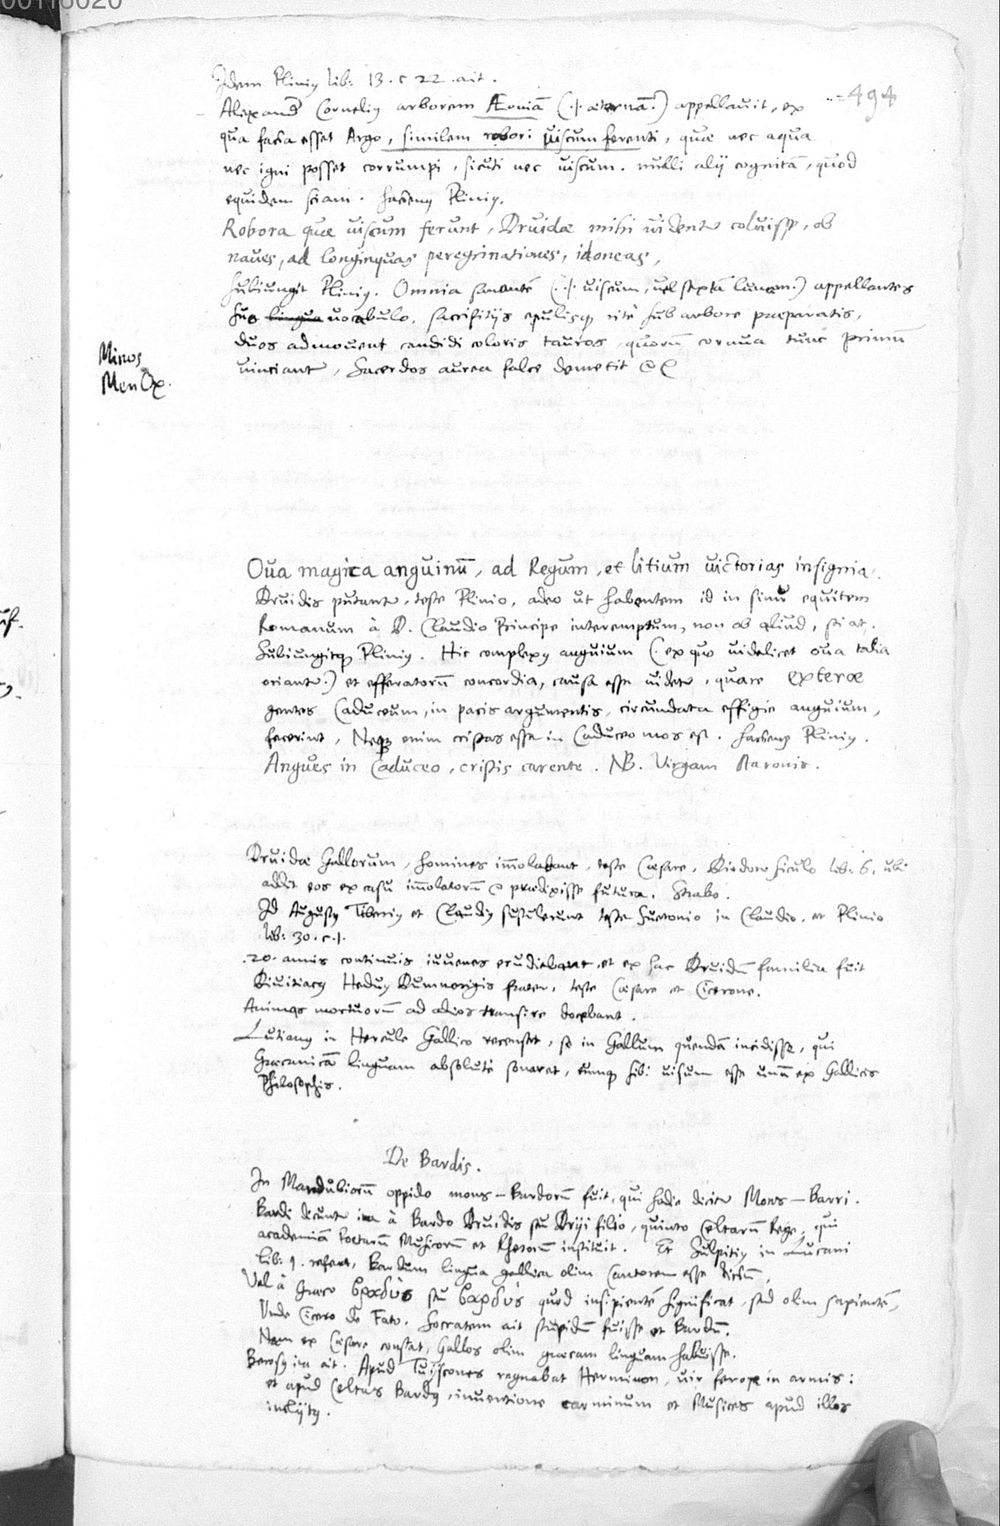 00116020
494
Idem Pliniꝰ lib: 13. c 22. ait.
Alexand Corneliꝰ arborem Æoniā (.|. æternā.) appellauit, ex
qua facta esset Argo, similem robori uiscum ferenti, quæ nec aqua
nec igni posset corrumpi, sicuti nec uiscum. nulli alij cognitā, quod
equidem sciam. hactenꝰ Pliniꝰ.
Robora quæ uiscum ferunt, Druidæ mihi uident coluisse, ob
naues, ad longinquas peregrinationes, idoneas,
Subiungit Pliniꝰ. Omnia sanantē (.|. uiscum, uel sexta lunæ.) appellantes
suo lingua uocabulo, sacrifitijs epulisqꝫ ritè sub arbore præparatis,
duos admouent candidi coloris tauros, quorū cornua tunc primū
uinciant, Sacerdos aurea falce demetit &c
Minos
Men
Oua magica anguinū, ad Regum, et litium uictorias insignia.
Druidis putant, teste Plinio, adeo ut habentem id in sinu equitem
Romanum à D. Claudio Principe interemptum, non ob aliud, sciat.
Subiungitqꝫ Pliniꝰ. Hic complexꝰ anguium (. ex quo uidelicet oua talia
oriant.) et efferatorū concordia, causa esse uidet, quare exteræ
gentes Caduceum, in pacis argumentis, circundata effigie anguium,
fecerint, Neqꝫ enim cristas esse in Caduceo mos est. hactenꝰ Pliniꝰ.
Angues in Caduceo, cristis carente. NB. Virgam Aaronis.
Druidæ Gallorum, homines im̄olabant, teste Cæsare, Diodoro Siculo lib: 6. ubi
addit eos ex casu im̄olatorū prædixisse futura. Strabo.
Id Augustꝰ Tiberiꝰ et Claudiꝰ sustulerunt teste Suetonio in Claudio, et Plinio
lib: 30. c. 1.
.20. annis continuis iuuenes erudiebant, et ex hac Druidū familia fuit
Diuitiacꝰ Heduꝰ Dumnorigis frater, teste Cæsare et Cicerone.
Animas mortuorū ad alios transire docebant.
Lutianꝰ in Hercule Gallico recenset, se in Gallum quendā incidisse, qui
Græcanicā linguam absolutè sonaret, eumqꝫ sibi uisum esse unū ex Gallicis
Philosophis.
De Bardis.
In Mandubiorū oppido mons-Bardorū fuit, qui hodie dicit Mons-Barri.
Bardi dicunt ita à Bardo Druidis seu Dryi filio, quinto Celtarū Rege, qui
academiā Poetarū Musicorū et Rhetorū instituit. Et Sulpitiꝰ in Lucani
lib: 1. refert, Bardum lingua gallica olim Cantorem esse dictū,
Vel à Græco βραδὺς seu βαρδὺς quod insipientē significat, sed olim sapientē,
Unde Cicero de Fato. Socratem ait stupidū fuisse et Bardū.
Nam ex Cæsare constat, Gallos olim græcam linguam habuisse.
Berosꝰ ita ait. Apud Tuiscones regnabat Herminon, uir ferox in armis:
et apud Celtas Bardꝰ, inuentione carminum et Musices apud illos
inclytꝰ.